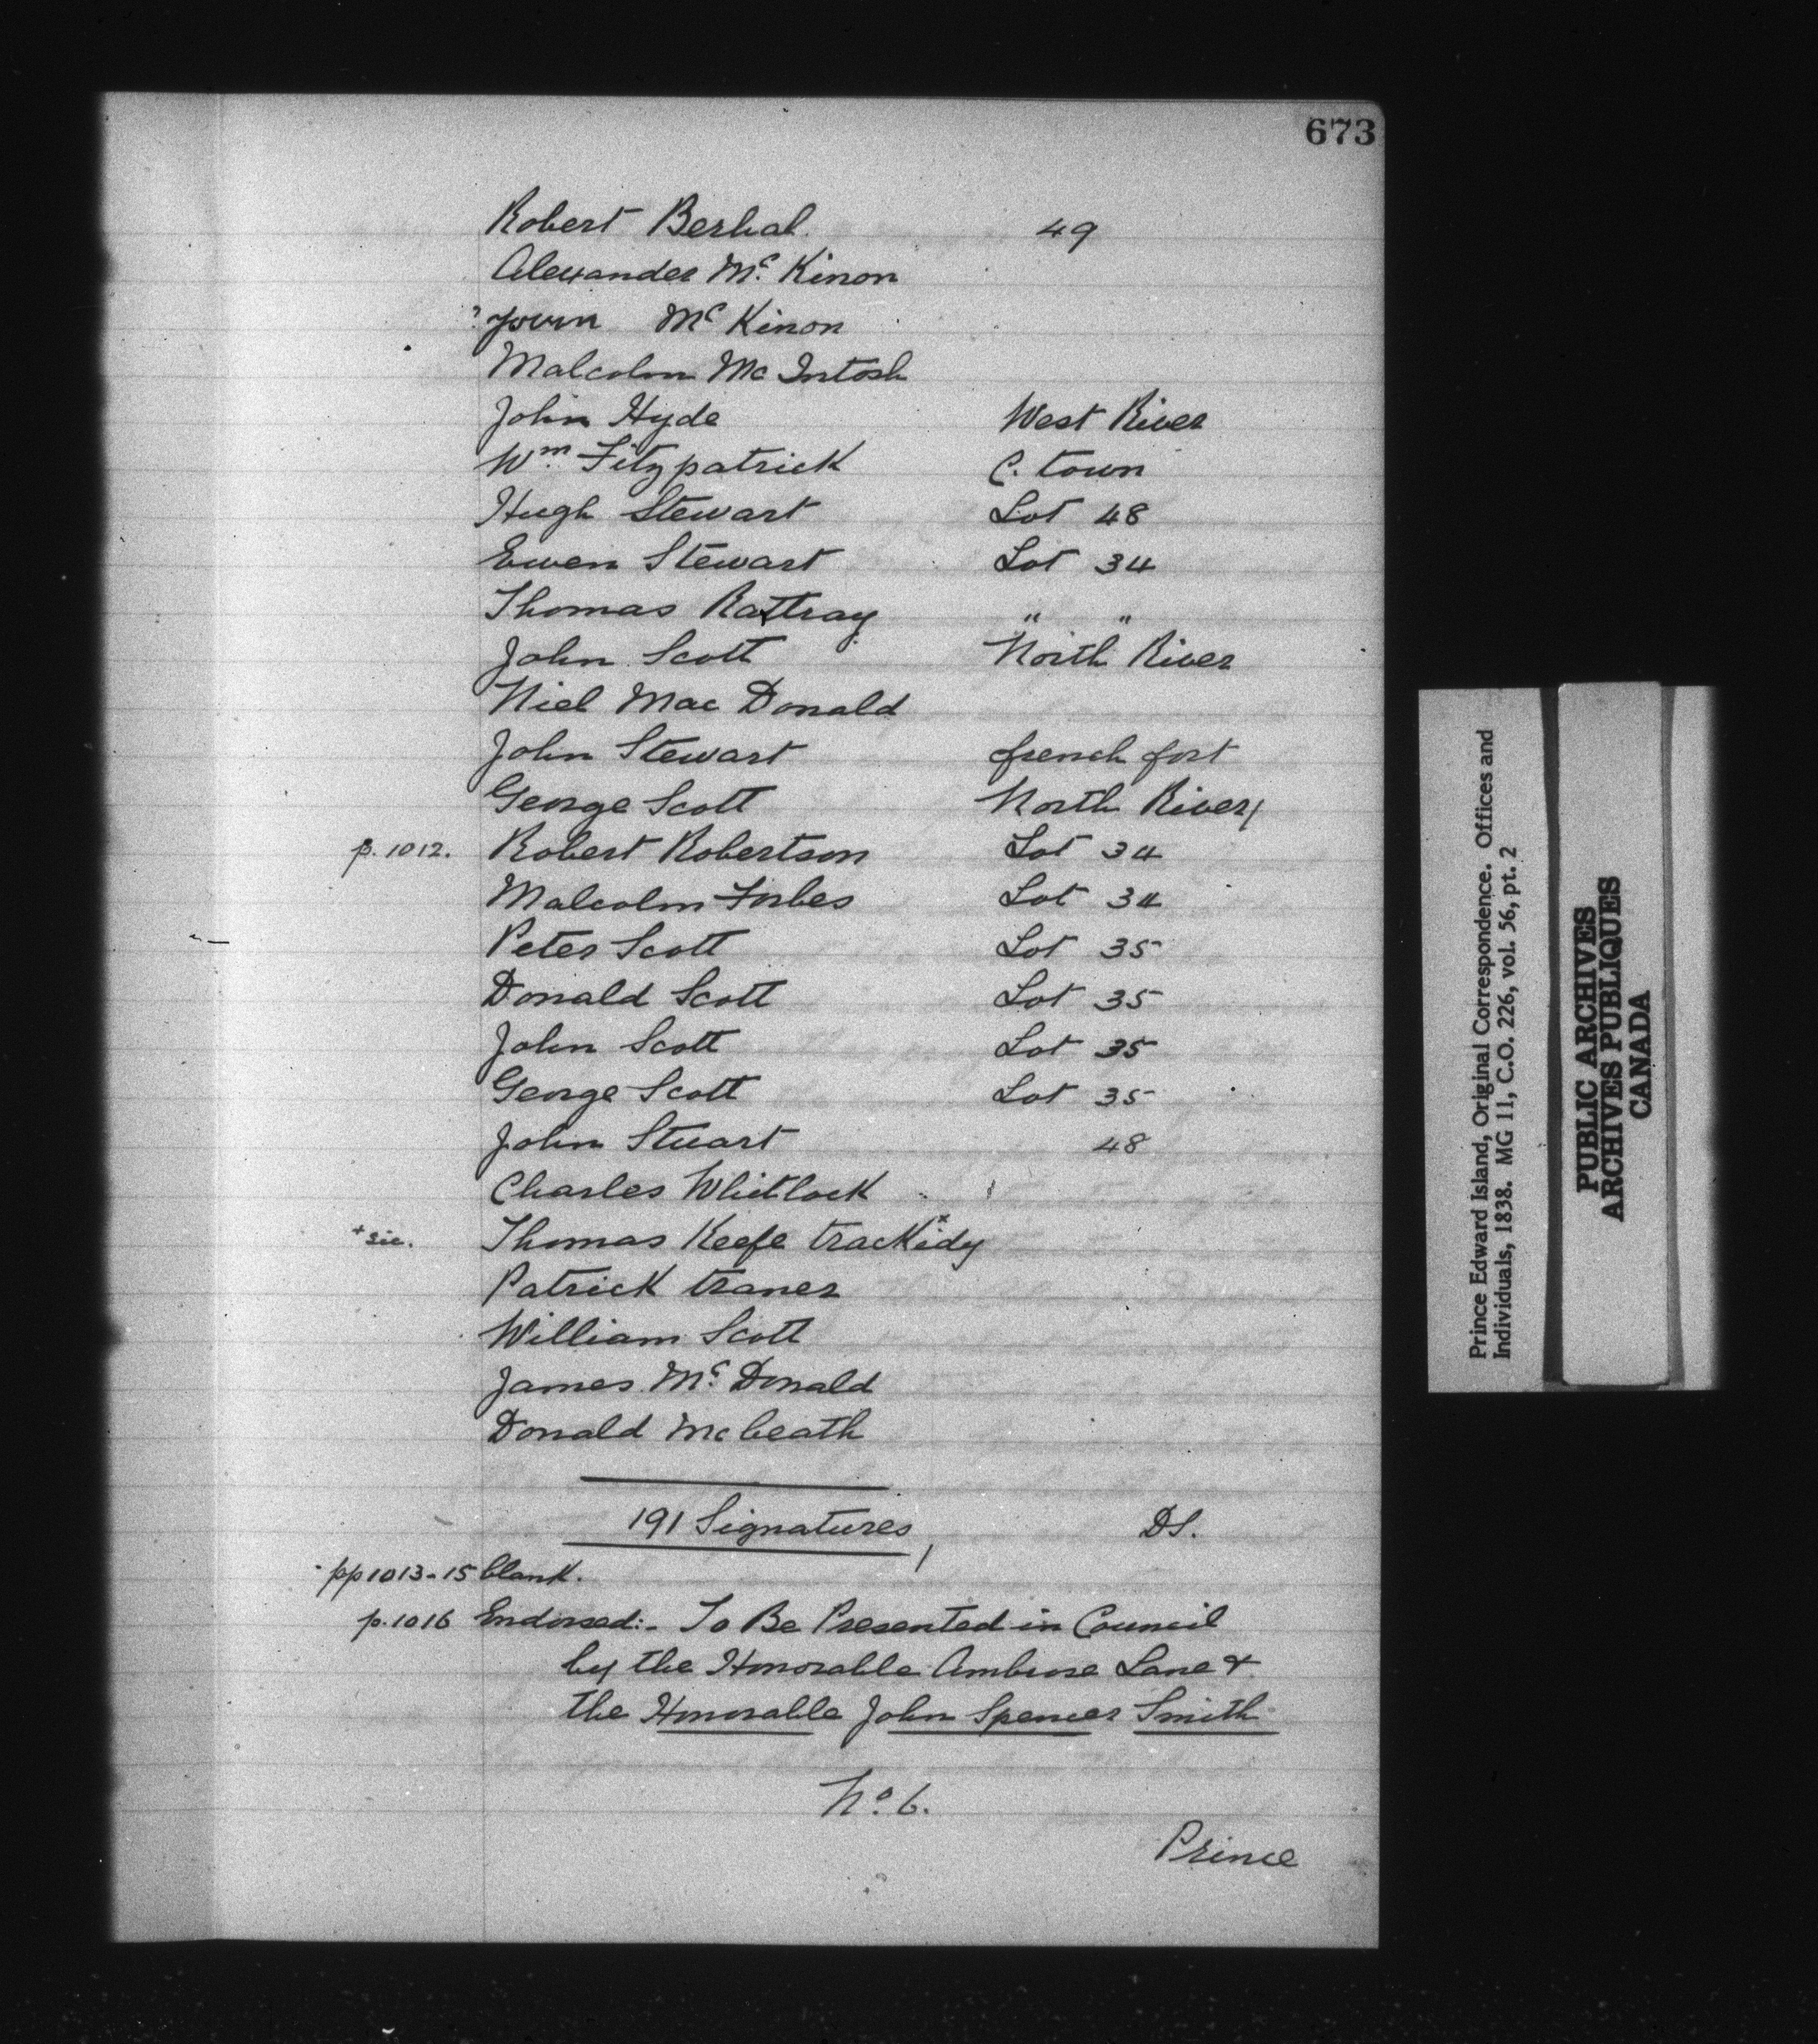 673
Robert 49
Alexander Mc. Kinon
? Mc Kinon
Malcolm Mc Intosh
John Hyde West River
Wm. Fitzpatrick C. town
Hugh Stewart Lot 48
Ewen Stewart Lot 34
Thomas Rattray " "
John Scott North River
Niel Mac Donald
John Stewart french fort
George Scott North River
p. 1012. Robert Robertson Lot 34
Malcolm Forbes Lot 34
Peter Scott Lot 35
Donald Scott Lot 35
John Scott Lot 35
George Scott Lot 35
John Stuart 48
Charles Whitlock
+ sic. Thomas Keefe trackidy x
Patrick traner
William Scott
James Mc. Donald
Donald Mcbeath
191 Signatures, DS.
pp 1013-15 blank.
p. 1016 Endorsed:- To Be Presented in Council
by the Honorable Ambrose Lane &
the Honorable John Spencer Smith
No. 6.
Prince
Prince Edward Island, Original Correspondence. Offices and
Individuals, 1838. MG 11, C.O. 226, vol. 56, pt. 2
PUBLIC ARCHIVES
ARCHIVES PUBLIQUES
CANADA